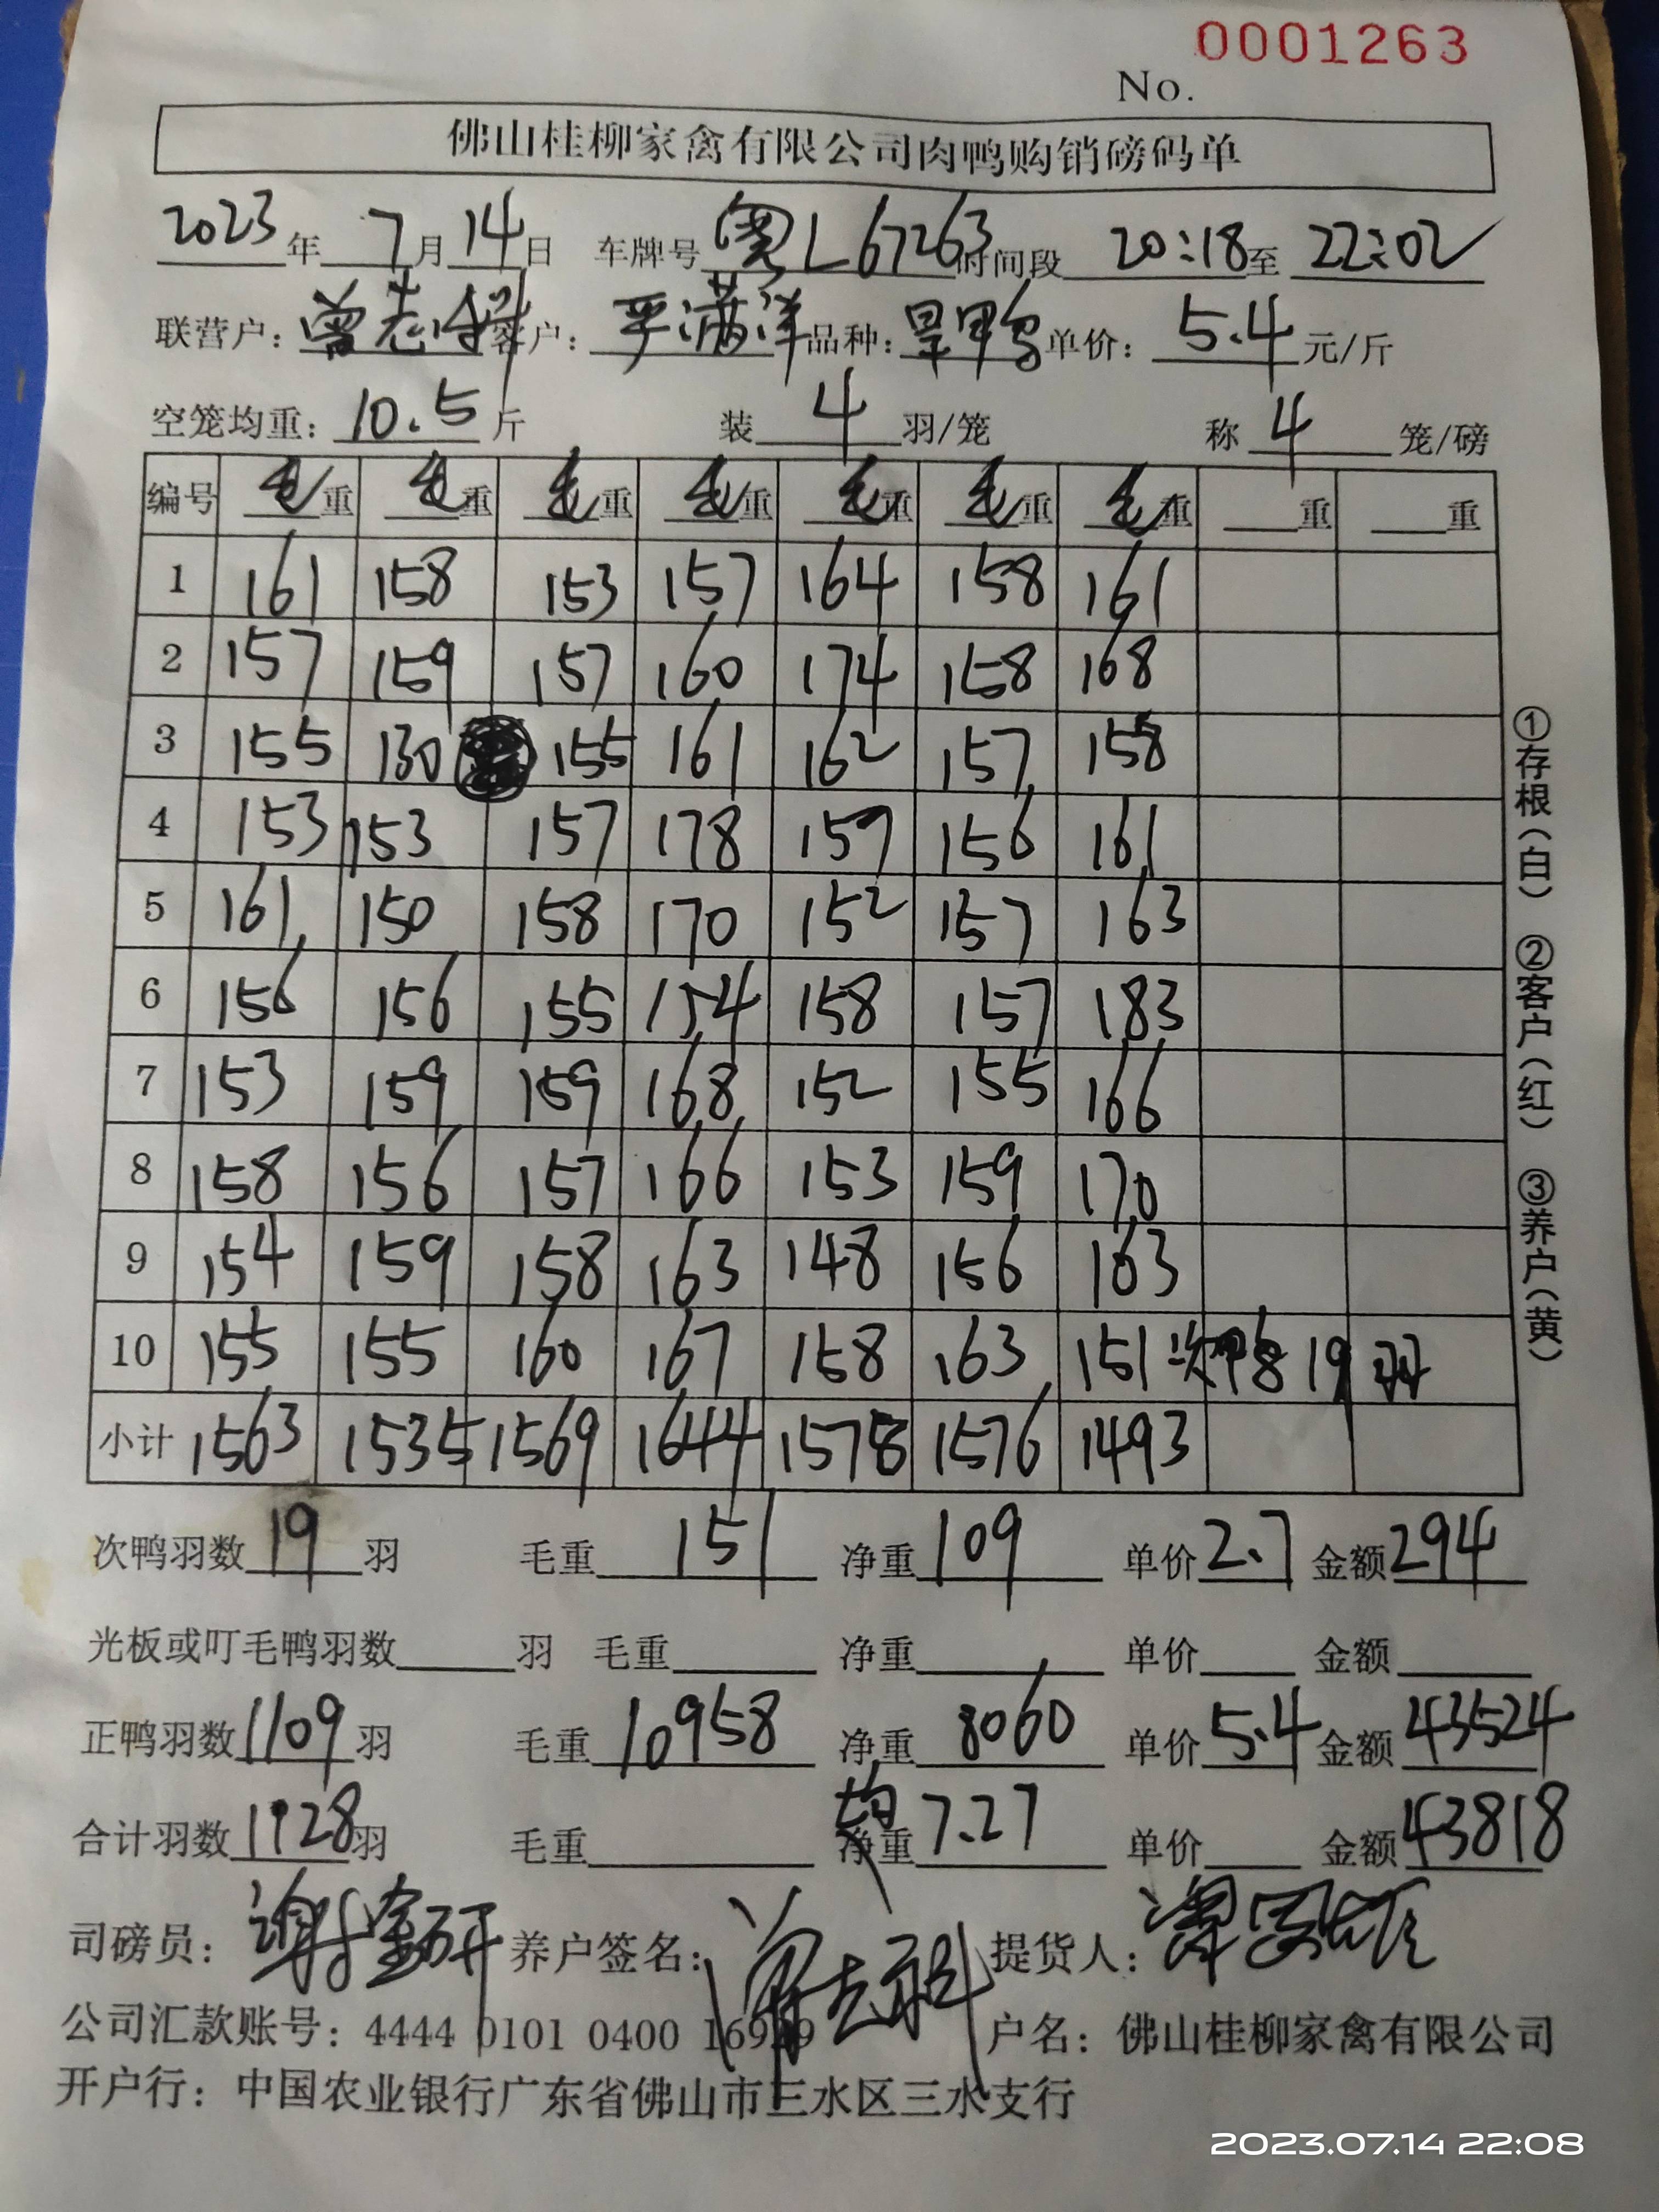 0001263
No.
佛山桂柳家禽有限公司肉鸭购销磅码单
2023年 7月14日 车牌号 粤L67263 时间段 20:18至 22:02
联营户: 曾志 客户: 严满洋 品种: 旱鸭 单价: 5.4 元/斤
空笼均重: 10.5 斤 装 4 羽/笼 称 4 笼/磅
编号 毛重 毛重 毛重 毛重 毛重 毛重 毛重 重 重
1 161 158 153 157 164 158 161
2 157 159 157 160 174 158 168
3 155 130 155 161 162 157 158
4 153 153 157 178 159 156 161
5 161 150 158 170 152 157 163
6 156 156 155 154 158 157 183
7 153 159 159 168 152 155 166
8 158 156 157 166 153 159 170
9 154 159 158 163 148 156 163
10 155 155 160 167 158 163 151 次鸭 19 羽
小计 1563 1535 1569 1644 1578 1576 1493
①存根(白) ②客户(红) ③养户(黄)
次鸭羽数 19 羽 毛重 151 净重 109 单价 2.7 金额 294
光板或叮毛鸭羽数 羽 毛重 净重 单价 金额
正鸭羽数 1109 羽 毛重 10958 净重 8060 单价 5.4 金额 43524
合计羽数 1128 羽 毛重 均 净重 7.27 单价 金额 43818
司磅员: 谢金研 养户签名: 提货人: 谭
公司汇款账号: 4444 0101 0400 16929 户名: 佛山桂柳家禽有限公司
开户行: 中国农业银行广东省佛山市三水区三水支行
2023.07.14 22:08